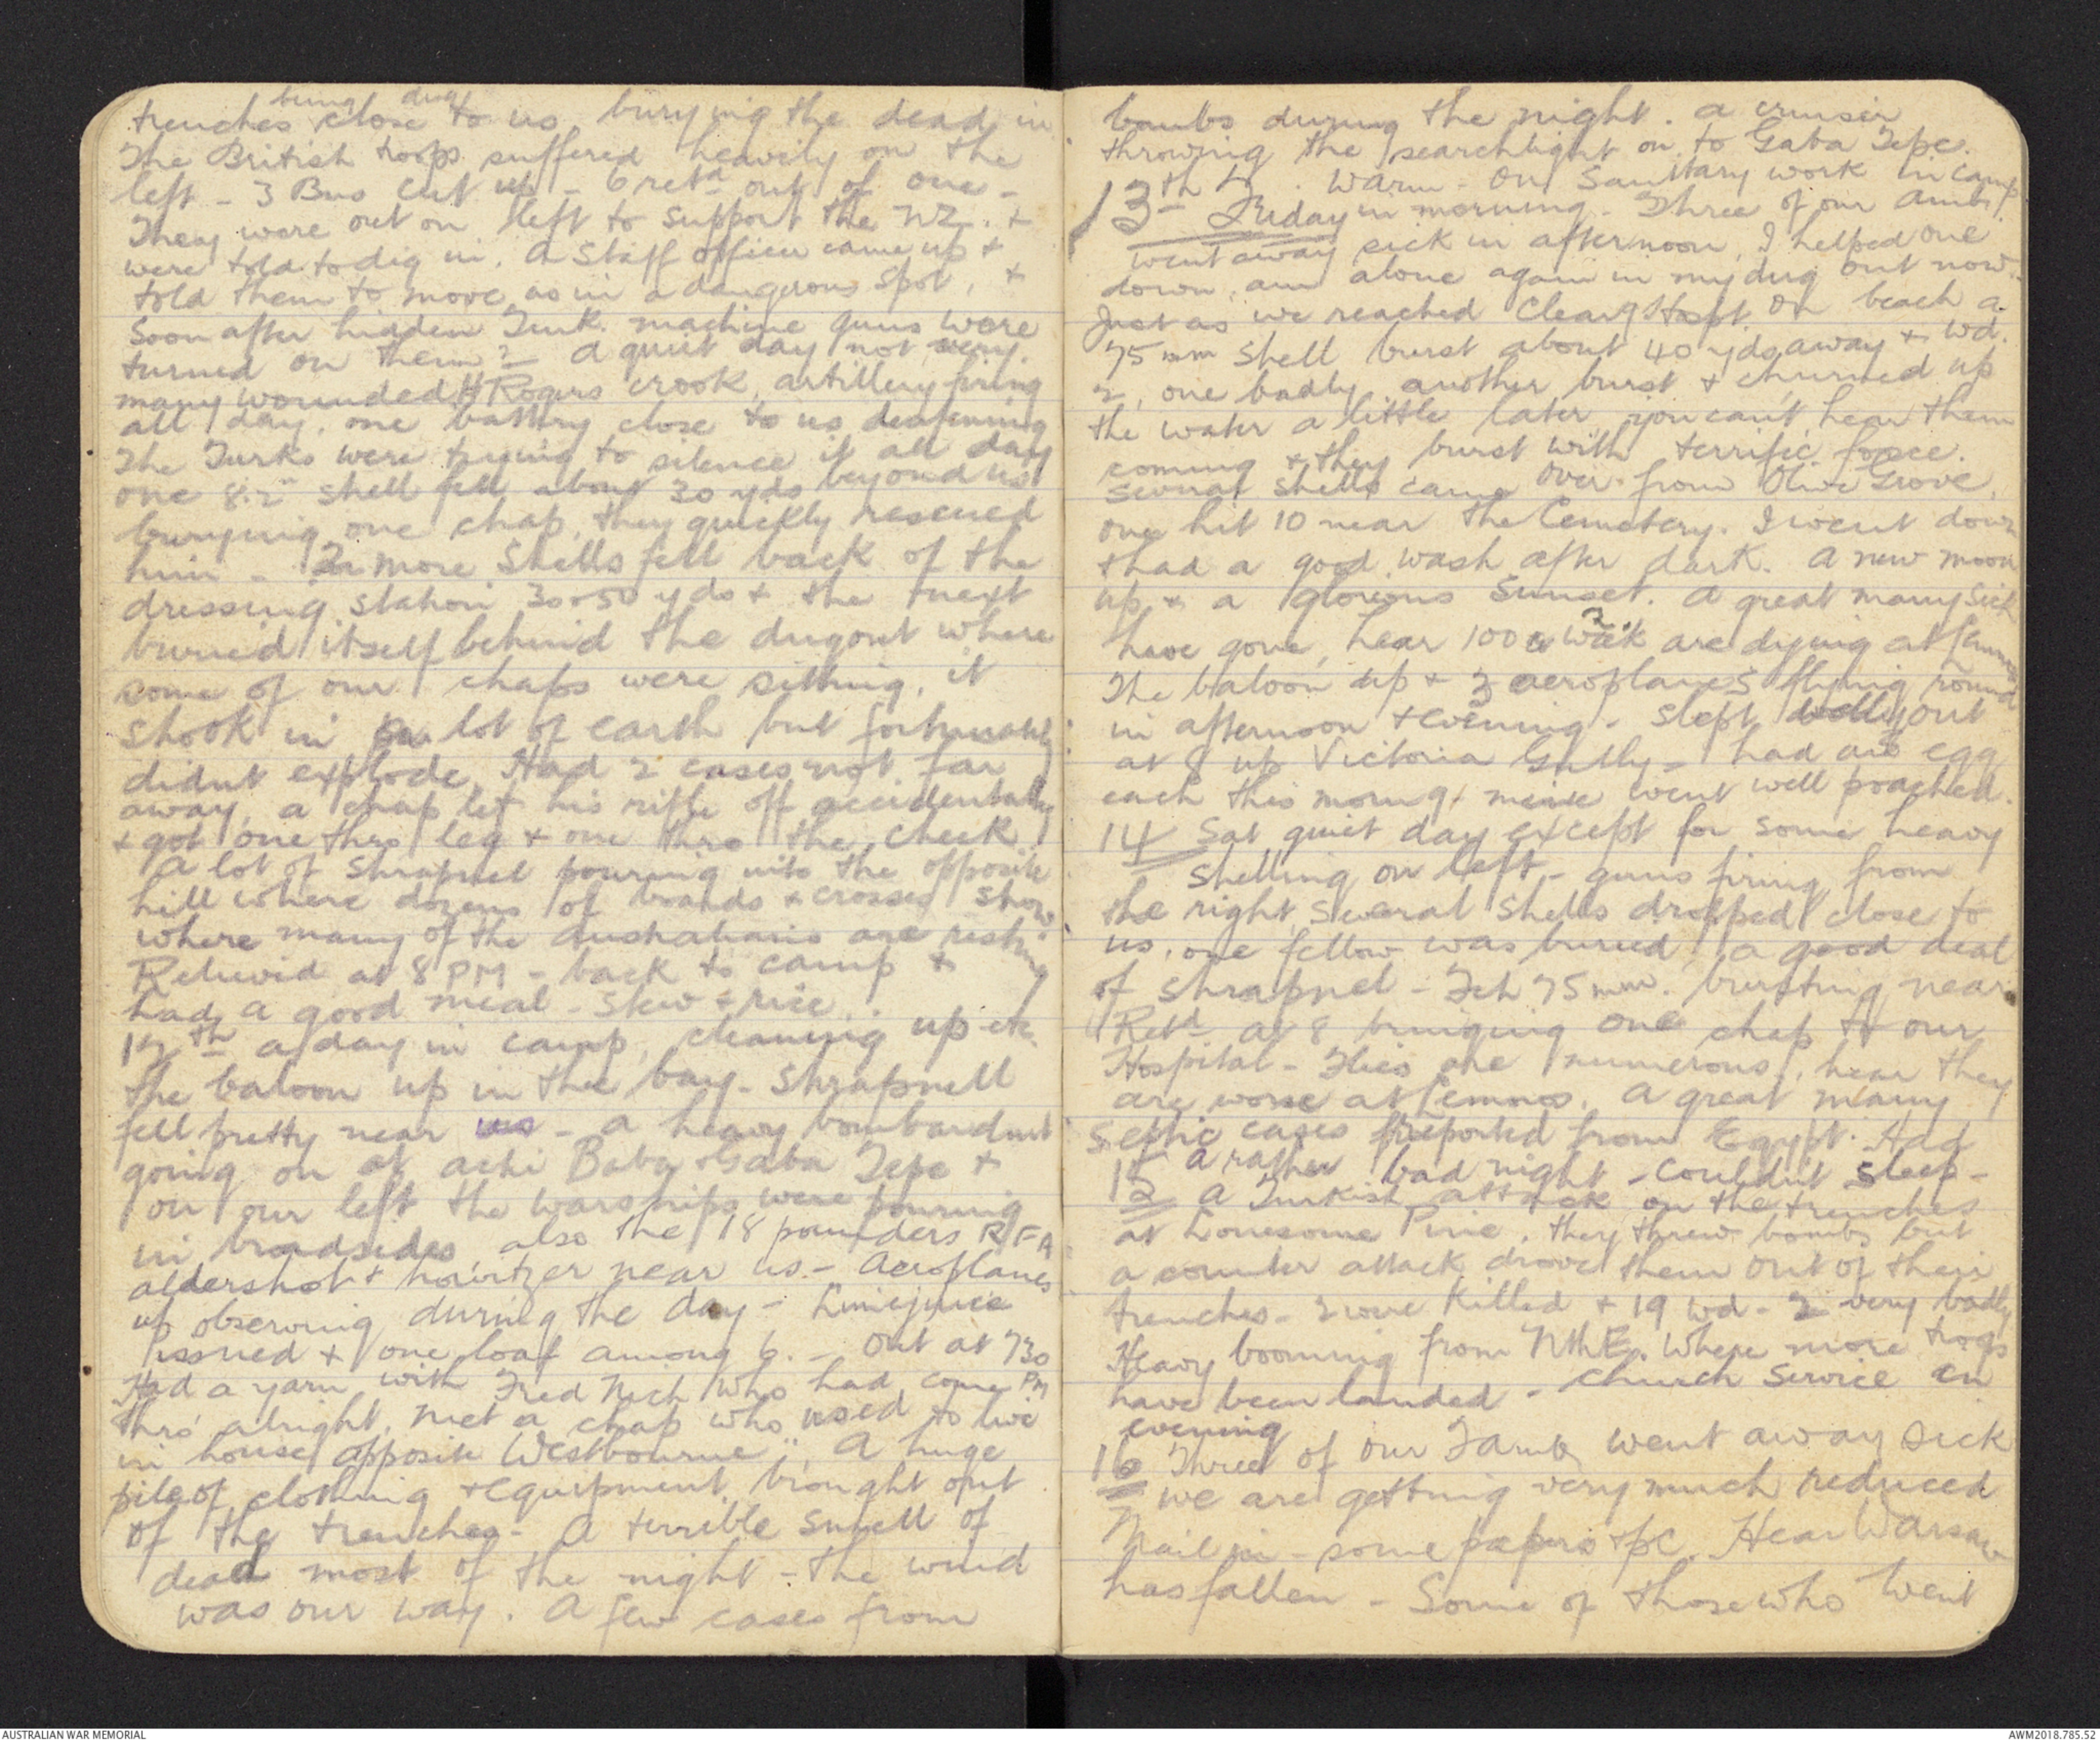 being dug
trenches close to us burying the dead in
The British troops suffered heavily on the
left - 3 Bns cut up - 6 retd out of one -
They were out on left to support the NZ. +
were told to dig in. A Staff officer came up +
told them to move as in a dangerous spot, +
soon after hidden Turk. machine guns were
turned on them - A quiet day not very
many wounded H Rogers crook, artillery firing
all day, one battery close to us deafening
The Turks were trying to silence it all day
one 8.2" shell fell about 30 yds beyond us
burying one chap, they quickly rescued
him - 2 more shells fell back of the
dressing station 30 or 50 yds + the next
buried itself behind the dugout where
some of our chaps were sitting, it
shook in a lot of earth but fortunately
didnt explode. Had 2 cases not far
away, a chap let his rifle off accidentally
+ got one thro leg + one thro the cheek
A lot of shrapnel pouring into the opposite
hill where dozens of boards + crosses show
where many of the Australians are resting
Relievid at 8 PM - back to camp +
had a good meal - stew + rice.
12th a day in camp, cleaning up etc
the baloon up in the bay - Shrapnell
fell pretty near us - a heavy bombardmt
going on at Achi Baba + Gaba Tepe +
on our left the warships were pouring
in broadsides, also the 18 pounders RFA
aldershot + howitzer near us - Aeroplanes
up observing during the day - Limejuice
issued + one loaf among 6. - Out at 730
PM
Had a yarn with Fred Nich who had come
thro' alright. Met a chap who used to live
in house opposite "Westbourne". A huge
pile of clothing + equipment brought out
of the trenches - A terrible smell of
dead most of the night - the wind
was our way. A few cases from
bombs during the night. a cruiser
throwing the searchlight on to Gaba Tepe.
13th Friday. Warm - On Sanitary work in camp
in morning. Three of our Amb.
went away sick in afternoon, I helped one
down, am alone again in my dug out now.
Just as we reached Clearg Hospt. on beach a
75 mm shell burst about 40 yds away + wd.
2, one badly, another burst + churned up
the water a little later, you can't hear them
coming + they burst with terrific force.
Several shells came over from Olive Grove,
one hit 10 near the Cemetery. I went down
+ had a good wash after dark. A new moon
up + a glorious Sunset. A great many sick
have gone, hear 100 a week ? are dying at Lemnos
The baloon up + 3 aeroplanes flying round
in afternoon + evening - slept well, out
at 8 up Victoria Gully - had an egg
each this morng. mine went well poached.
14 Sat quiet day except for some heavy
shelling on left - guns firing from
the right, several shells dropped close to
us, one fellow was buried, a good deal
of shrapnel - Fch 75 mm. bursting near
Retd at 8 bringing one chap to our
Hospital - Flies are numerous, hear they
are worse at Lemnos. A great many
Septic cases reported from Egypt. Had
a rather bad night - couldn't sleep -
15 A Turkish attack on the trenches
at Lonesome Pine, they threw bombs but
a counter attack drove them out of their
trenches - 2 were killed + 19 wd - 2 very badly
Heavy booming from Nth E. Where more troops
have been landed - Church Service in
evening
16 Three of our F amb went away sick
we are getting very much reduced
Mail in - some papers + pc. Hear Warsaw
has fallen - Some of those who went
AUSTRALIAN WAR MEMORIAL
AWM2018.785.52